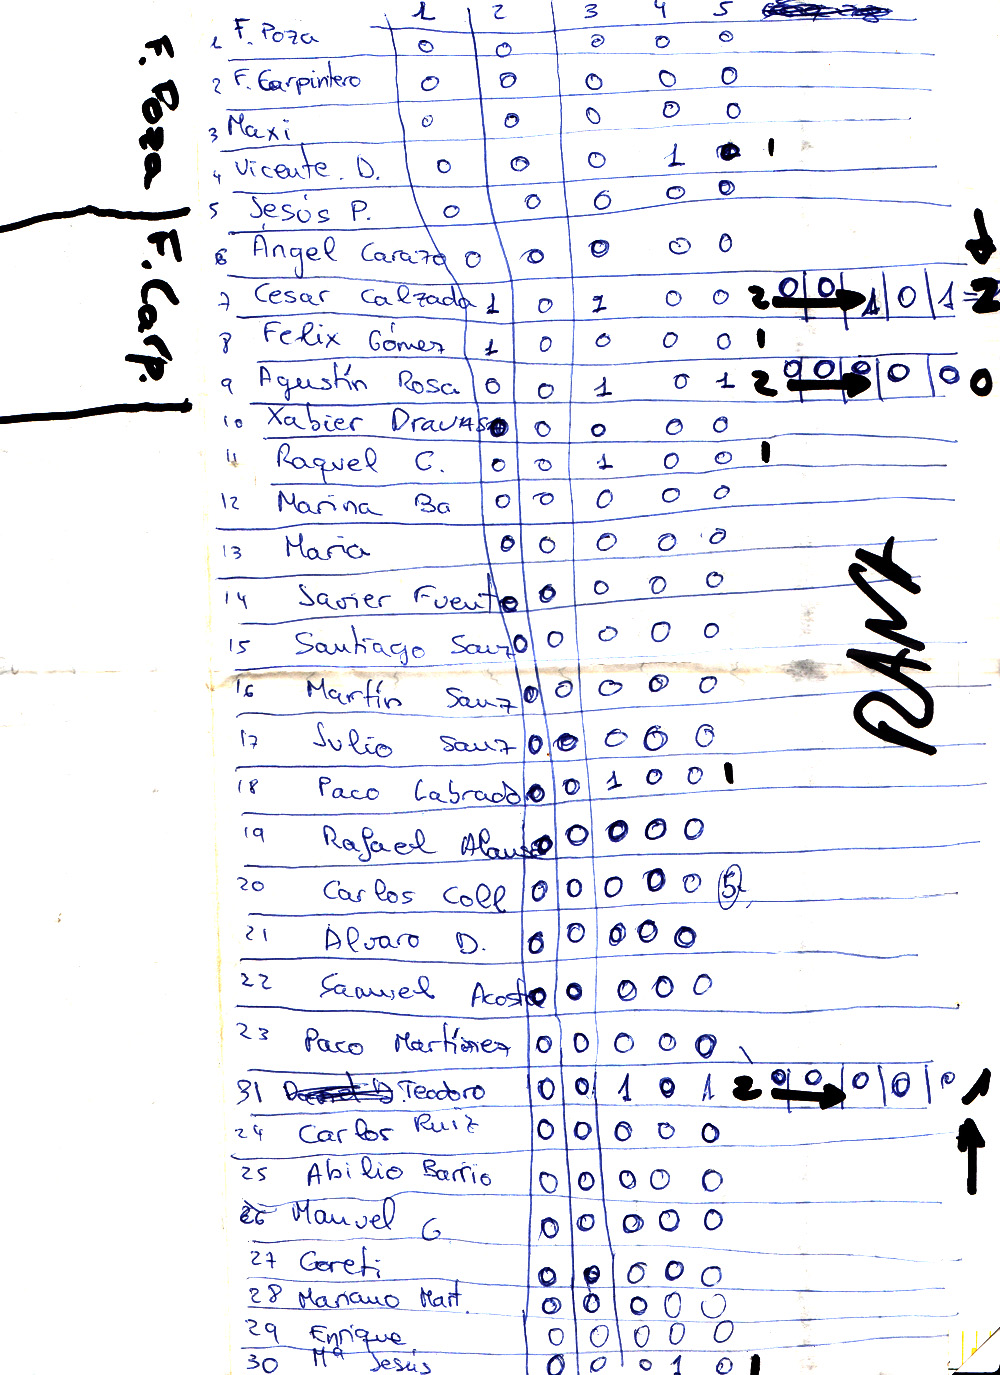 1 2 3 4 5
1 F. Poza 0 0 0 0 0
2 F. Carpintero 0 0 0 0 0
3 Maxi 0 0 0 0 0
4 Vicente. D. 0 0 0 1 0 1
5 Jesús P. 0 0 0 0 0
6 Ángel Carazo 0 0 0 0 0
7 Cesar Calzada 1 0 1 0 0 2 0 0 1 0 1 = 2
8 Felix Gómez 1 0 0 0 0 1
9 Agustín Rosa 0 0 1 0 1 2 0 0 0 0 0 0
10 Xabier 0 0 0 0 0
11 Raquel C. 0 0 1 0 0 1
12 Marina Ba 0 0 0 0 0
13 Maria 0 0 0 0 0
14 Javier Fuent 0 0 0 0 0
15 Santiago Sanz 0 0 0 0 0
16 Martín Sanz 0 0 0 0 0
17 Julio Sanz 0 0 0 0 0
18 Paco Labrado 0 0 1 0 0 1
19 Rafael Alonso 0 0 0 0 0
20 Carlos Coll 0 0 0 0 0 5
21 Alvaro D. 0 0 0 0 0
22 Samuel Acosta 0 0 0 0 0
23 Paco Martínez 0 0 0 0 0
31 Teodoro 0 0 1 0 1 2 0 0 0 0 0 1
24 Carlos Ruiz 0 0 0 0 0
25 Abilio Barrio 0 0 0 0 0
26 Manuel G 0 0 0 0 0
27 Goreti 0 0 0 0 0
28 Mariano Mart. 0 0 0 0 0
29 Enrique 0 0 0 0 0
30 Mª Jesús 0 0 0 1 0 1
F. Poza
F. Carp.
RANA